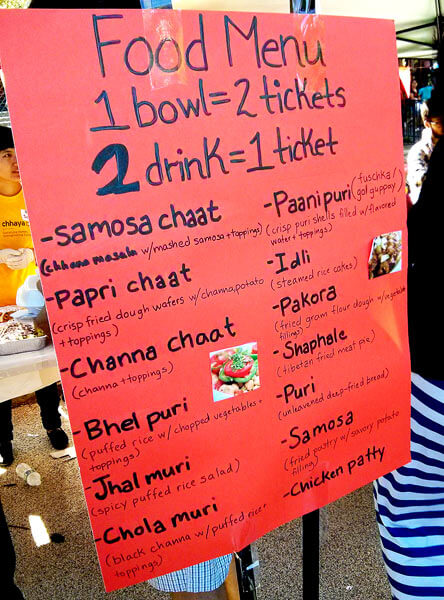 Food Menu
1 bowl=2 tickets
2 drink=1 ticket
-Samosa chaat
(chhana masala w/mashed samosa+toppings)
-Papri chaat
(crisp fried dough wafers w/channa,potato
+toppings)
-Channa chaat
(channa+toppings)
-Bhel puri
(puffed rice w/chopped vegetables+
toppings)
-Jhal muri
(spicy puffed rice salad)
-Chola muri
(black channa w/puffed rice+
toppings)
-Paani puri (fuschka/
gol guppay)
(crisp puri shells filled w/flavored
water+toppings)
-Idli
(steamed rice cakes)
-Pakora
(fried gram flour dough w/vegetable
fillings)
-Shaphale
(tibetan fried meat pie)
-Puri
(unleavened deep-fried bread)
-Samosa
(fried pastry w/savory potato
filling)
-Chicken patty
chhaya